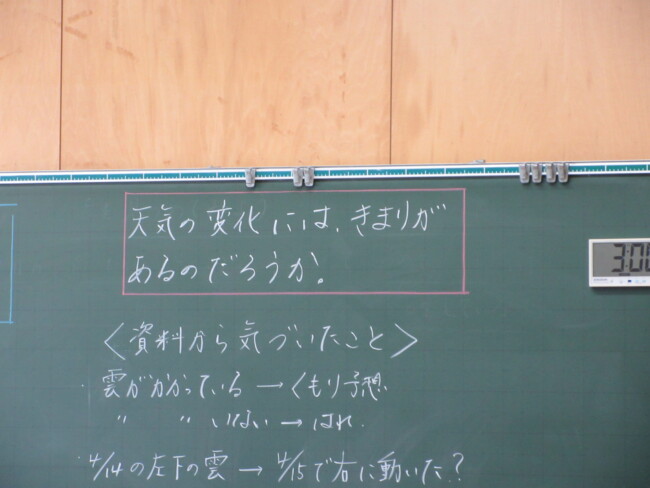 天気の変化には、きまりが
あるのだろうか。
〈資料から気づいたこと〉
・雲がかかっている → くもり予想
〃 〃 いない → はれ
・4/14の左下の雲 → 4/15で右に動いた?